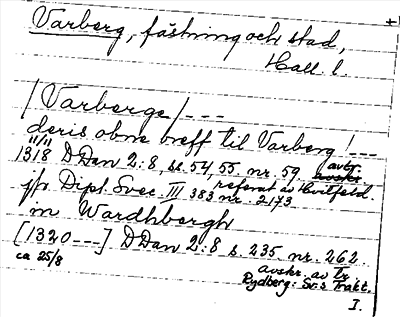 +
Varberg, fästning och stad,
Hall. l.
/Varberge/---
deris obne breff til Varberg!---
11/11
1318 DDan 2:8, ss. 54, 55. nr. 59. avtr.
referat av Hvitfeld.
jfr. Dipl. Svec. III 383 nr. 2173
in Wardhbergh
[1320---] DDan 2:8 s. 235 nr. 262.
ca 25/8 avskr. av tr.
Rydberg: Sv:s Trakt.
I.